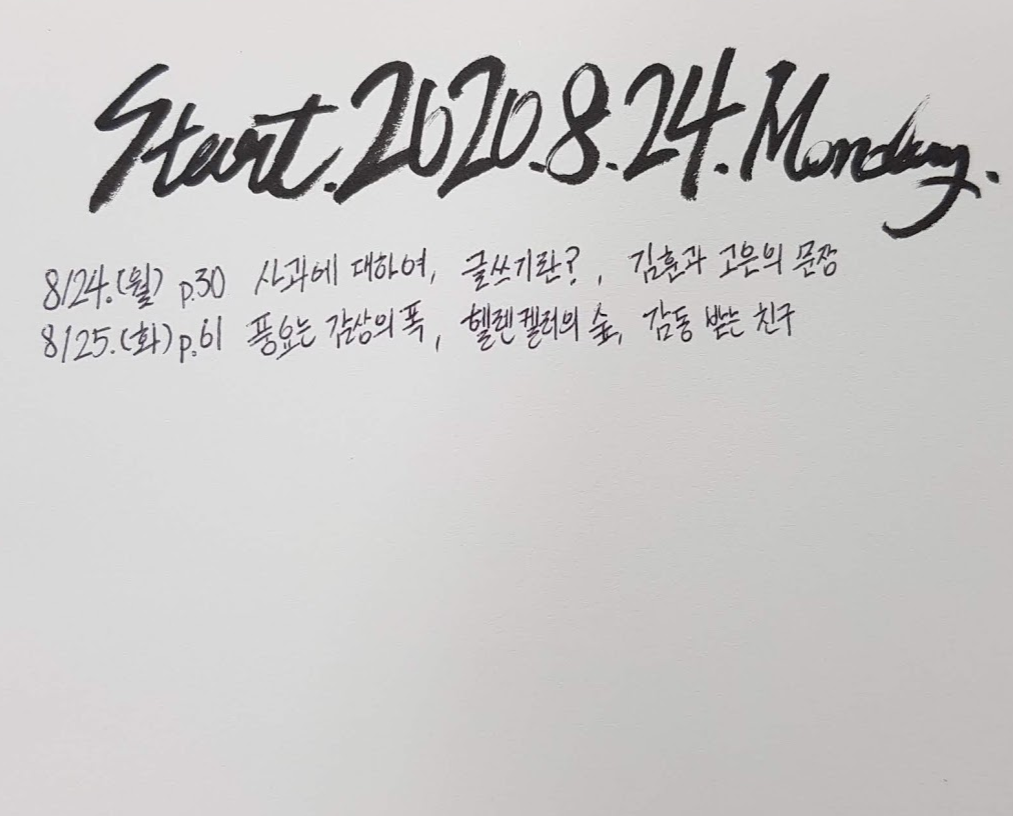 Start. 2020. 8. 24. Monday.
8/24.(월) p.30 사과에 대하여, 글쓰기란?, 김훈과 고은의 문장
8/25.(화) p.61 풍요는 감상의 폭, 헬렌켈러의 숲, 감동 받는 친구